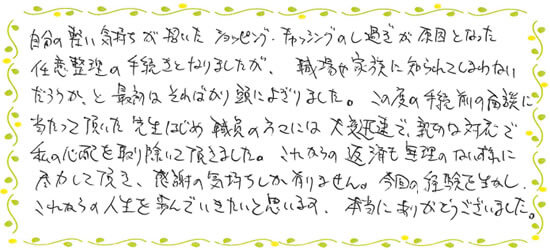 自分の軽い気持ちが招いたショッピング・キャッシングのし過ぎが原因となった
任意整理の手続きとなりましたが、職場や家族に知られてしまわない
だろうか、と最初はそればかり頭によぎりました。この度の手続前の面談に
当たって頂いた先生はじめ職員の方々には大変迅速で、親切な対応で
私の心配を取り除いて頂きました。これからの返済も無理のない様に
尽力して頂き、感謝の気持ちしか有りません。今回の経験を生かし、
これからの人生を歩んでいきたいと思います。本当にありがとうございました。